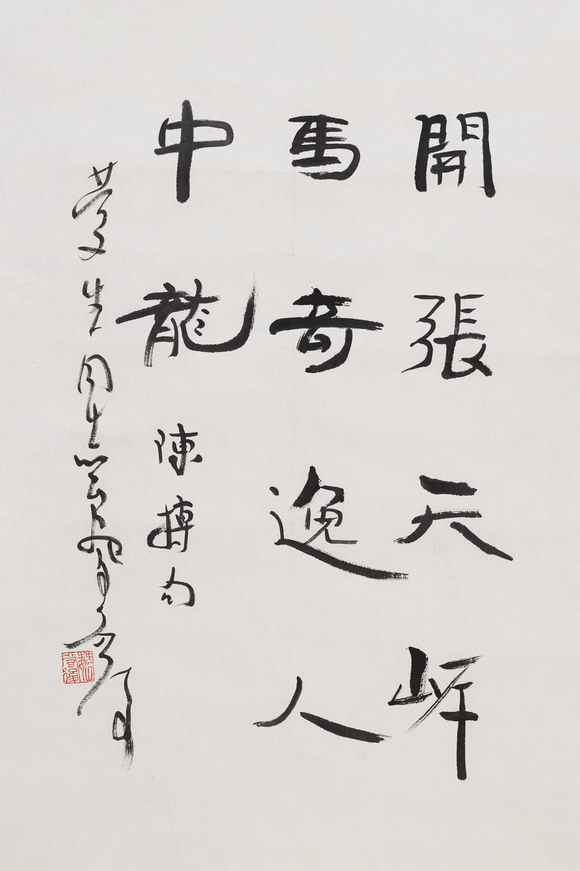 開張天岸
馬奇逸人
中龍 陳摶句
生同志